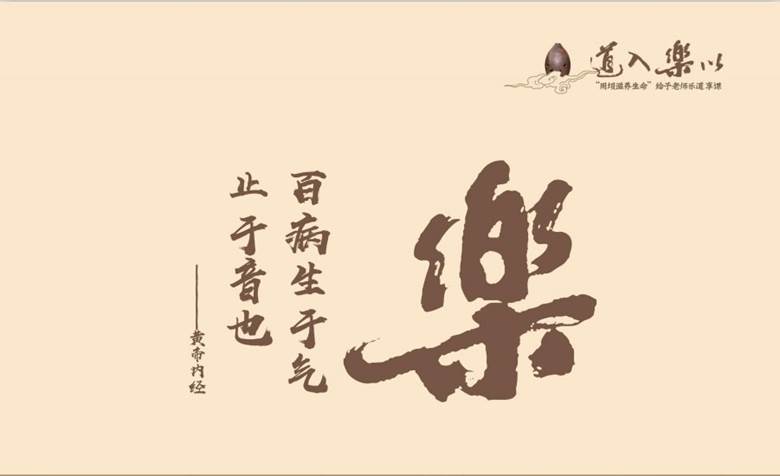 道入樂以
“用埙滋养生命” 给予老师乐道享课
樂
百病生于气
止于音也
——黄帝内经